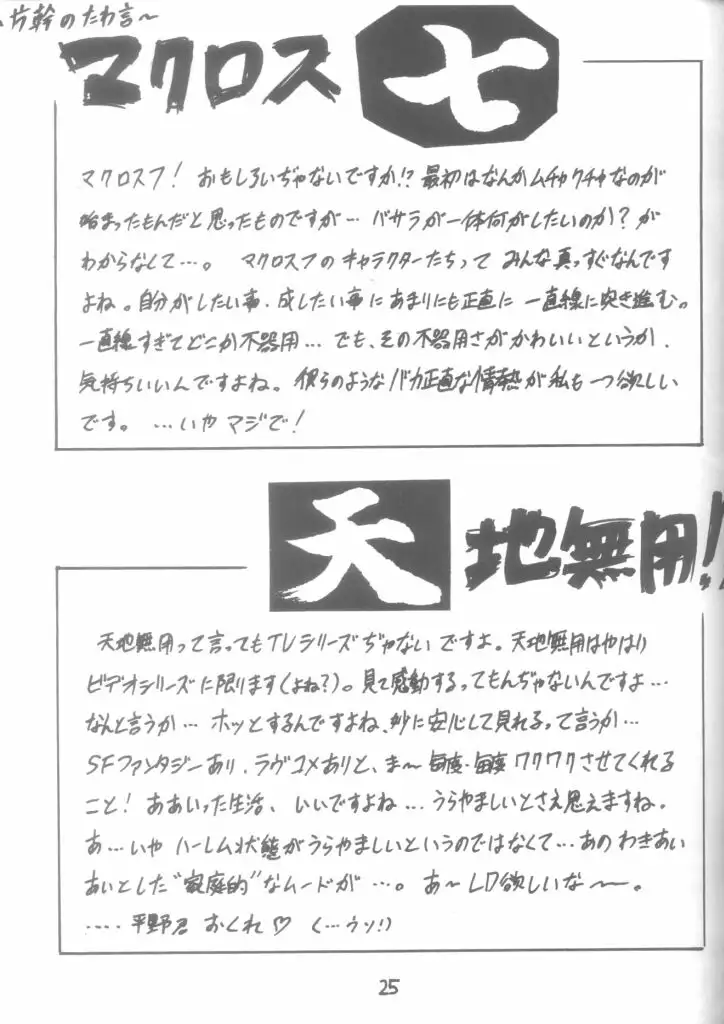 片幹のたわ言～
マクロス七
マクロス7! おもしろいぢゃないですか!? 最初はなんかムチャクチャなのが
始まったもんだと思ったものですが… バサラが一体何がしたいのか?が
わからなくて…。 マクロス7のキャラクターたちって みんな真っすぐなんです
よね。自分がしたい事、成したい事にあまりにも正直に 一直線に突き進む。
一直線すぎてどこか不器用… でも、その不器用さがかわいいというか、
気持ちいいんですよね。彼らのようなバカ正直な情熱が私も一つ欲しい
です。 …いや マジで!
天地無用!
天地無用って言ってもTVシリーズぢゃないですよ。天地無用はやはり
ビデオシリーズに限ります(よね?)。見て感動するってもんぢゃないんですよ…
なんと言うか… ホッとするんですよね、妙に安心して見れるって言うか…
SFファンタジーあり、ラヴコメありと、ま～毎度・毎度ワクワクさせてくれる
こと! ああいった生活、いいですよね…うらやましいとさえ思えますね。
あ…いや ハーレム状態がうらやましいというのではなくて…あの わきあい
あいとした"家庭的"なムードが …。あ～LD欲しいな～。
…‥平野君 おくれ♡ (…ウソ!)
25